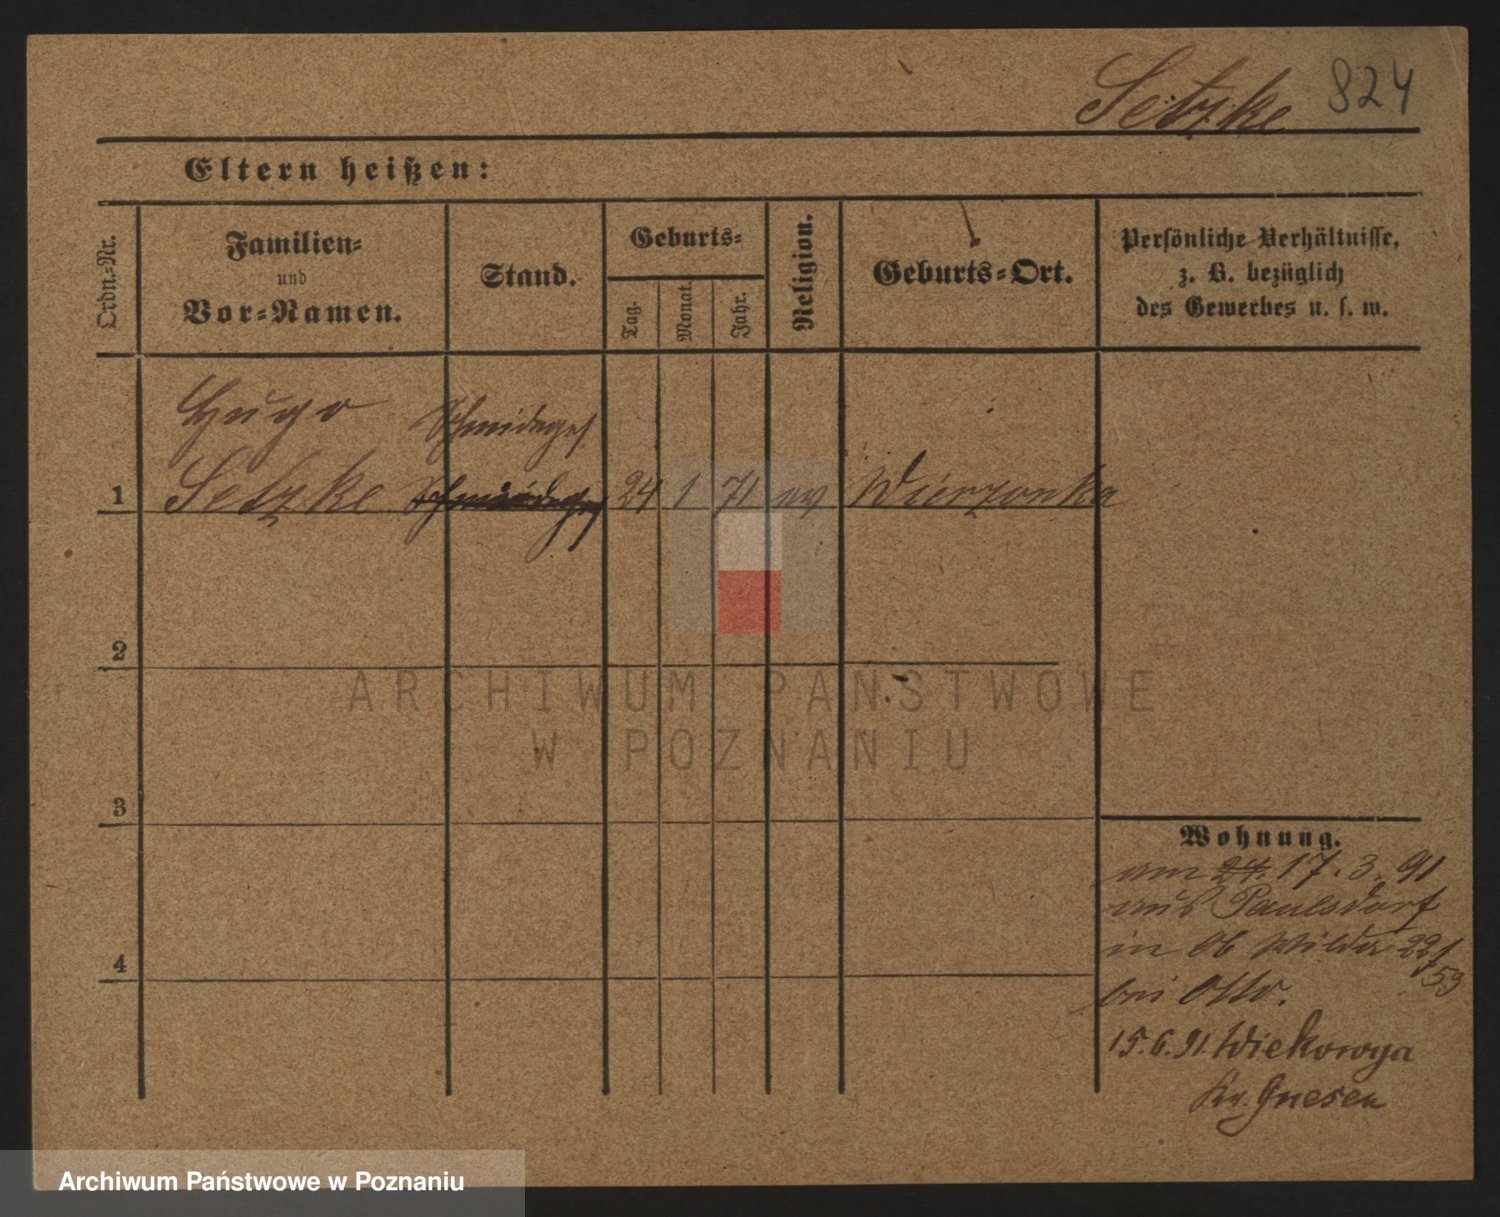 Setzke 824
Eltern heißen:
Ordn.-Nr.
Familien-
und
Vor-Namen.
Stand.
Geburts-
Tag.
Monat.
Jahr.
Religion.
Geburts-Ort.
Persönliche Verhältnisse,
z. B. bezüglich
des Gewerbes u. s. w.
Hugo Schmiedeges
1 Setzke 24 1 71 ev Wierzonka
2
ARCHIWUM PAŃSTWOWE
W POZNANIU
3
4
Wohnung.
am 24. 17. 3. 91
aus Paulsdorf
in Ob Wilda 22/
59
bei Otto.
15.6.91. Wiekowya
Kr. Gnesen
Archiwum Państwowe w Poznaniu